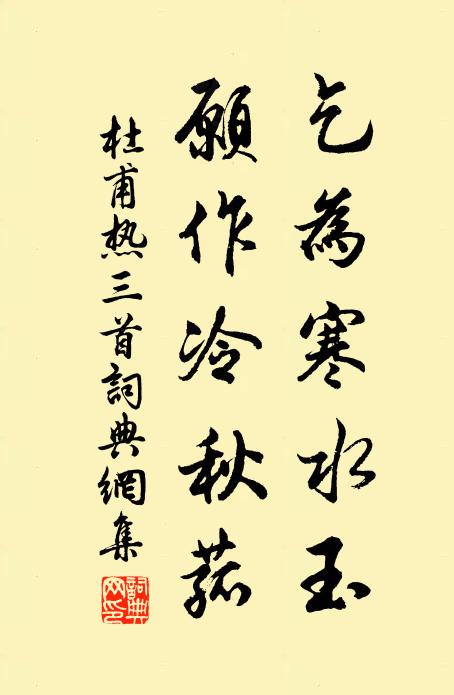 乞為寒水玉
願作冷秋菰
杜甫热三首詞典網集
詞典網印